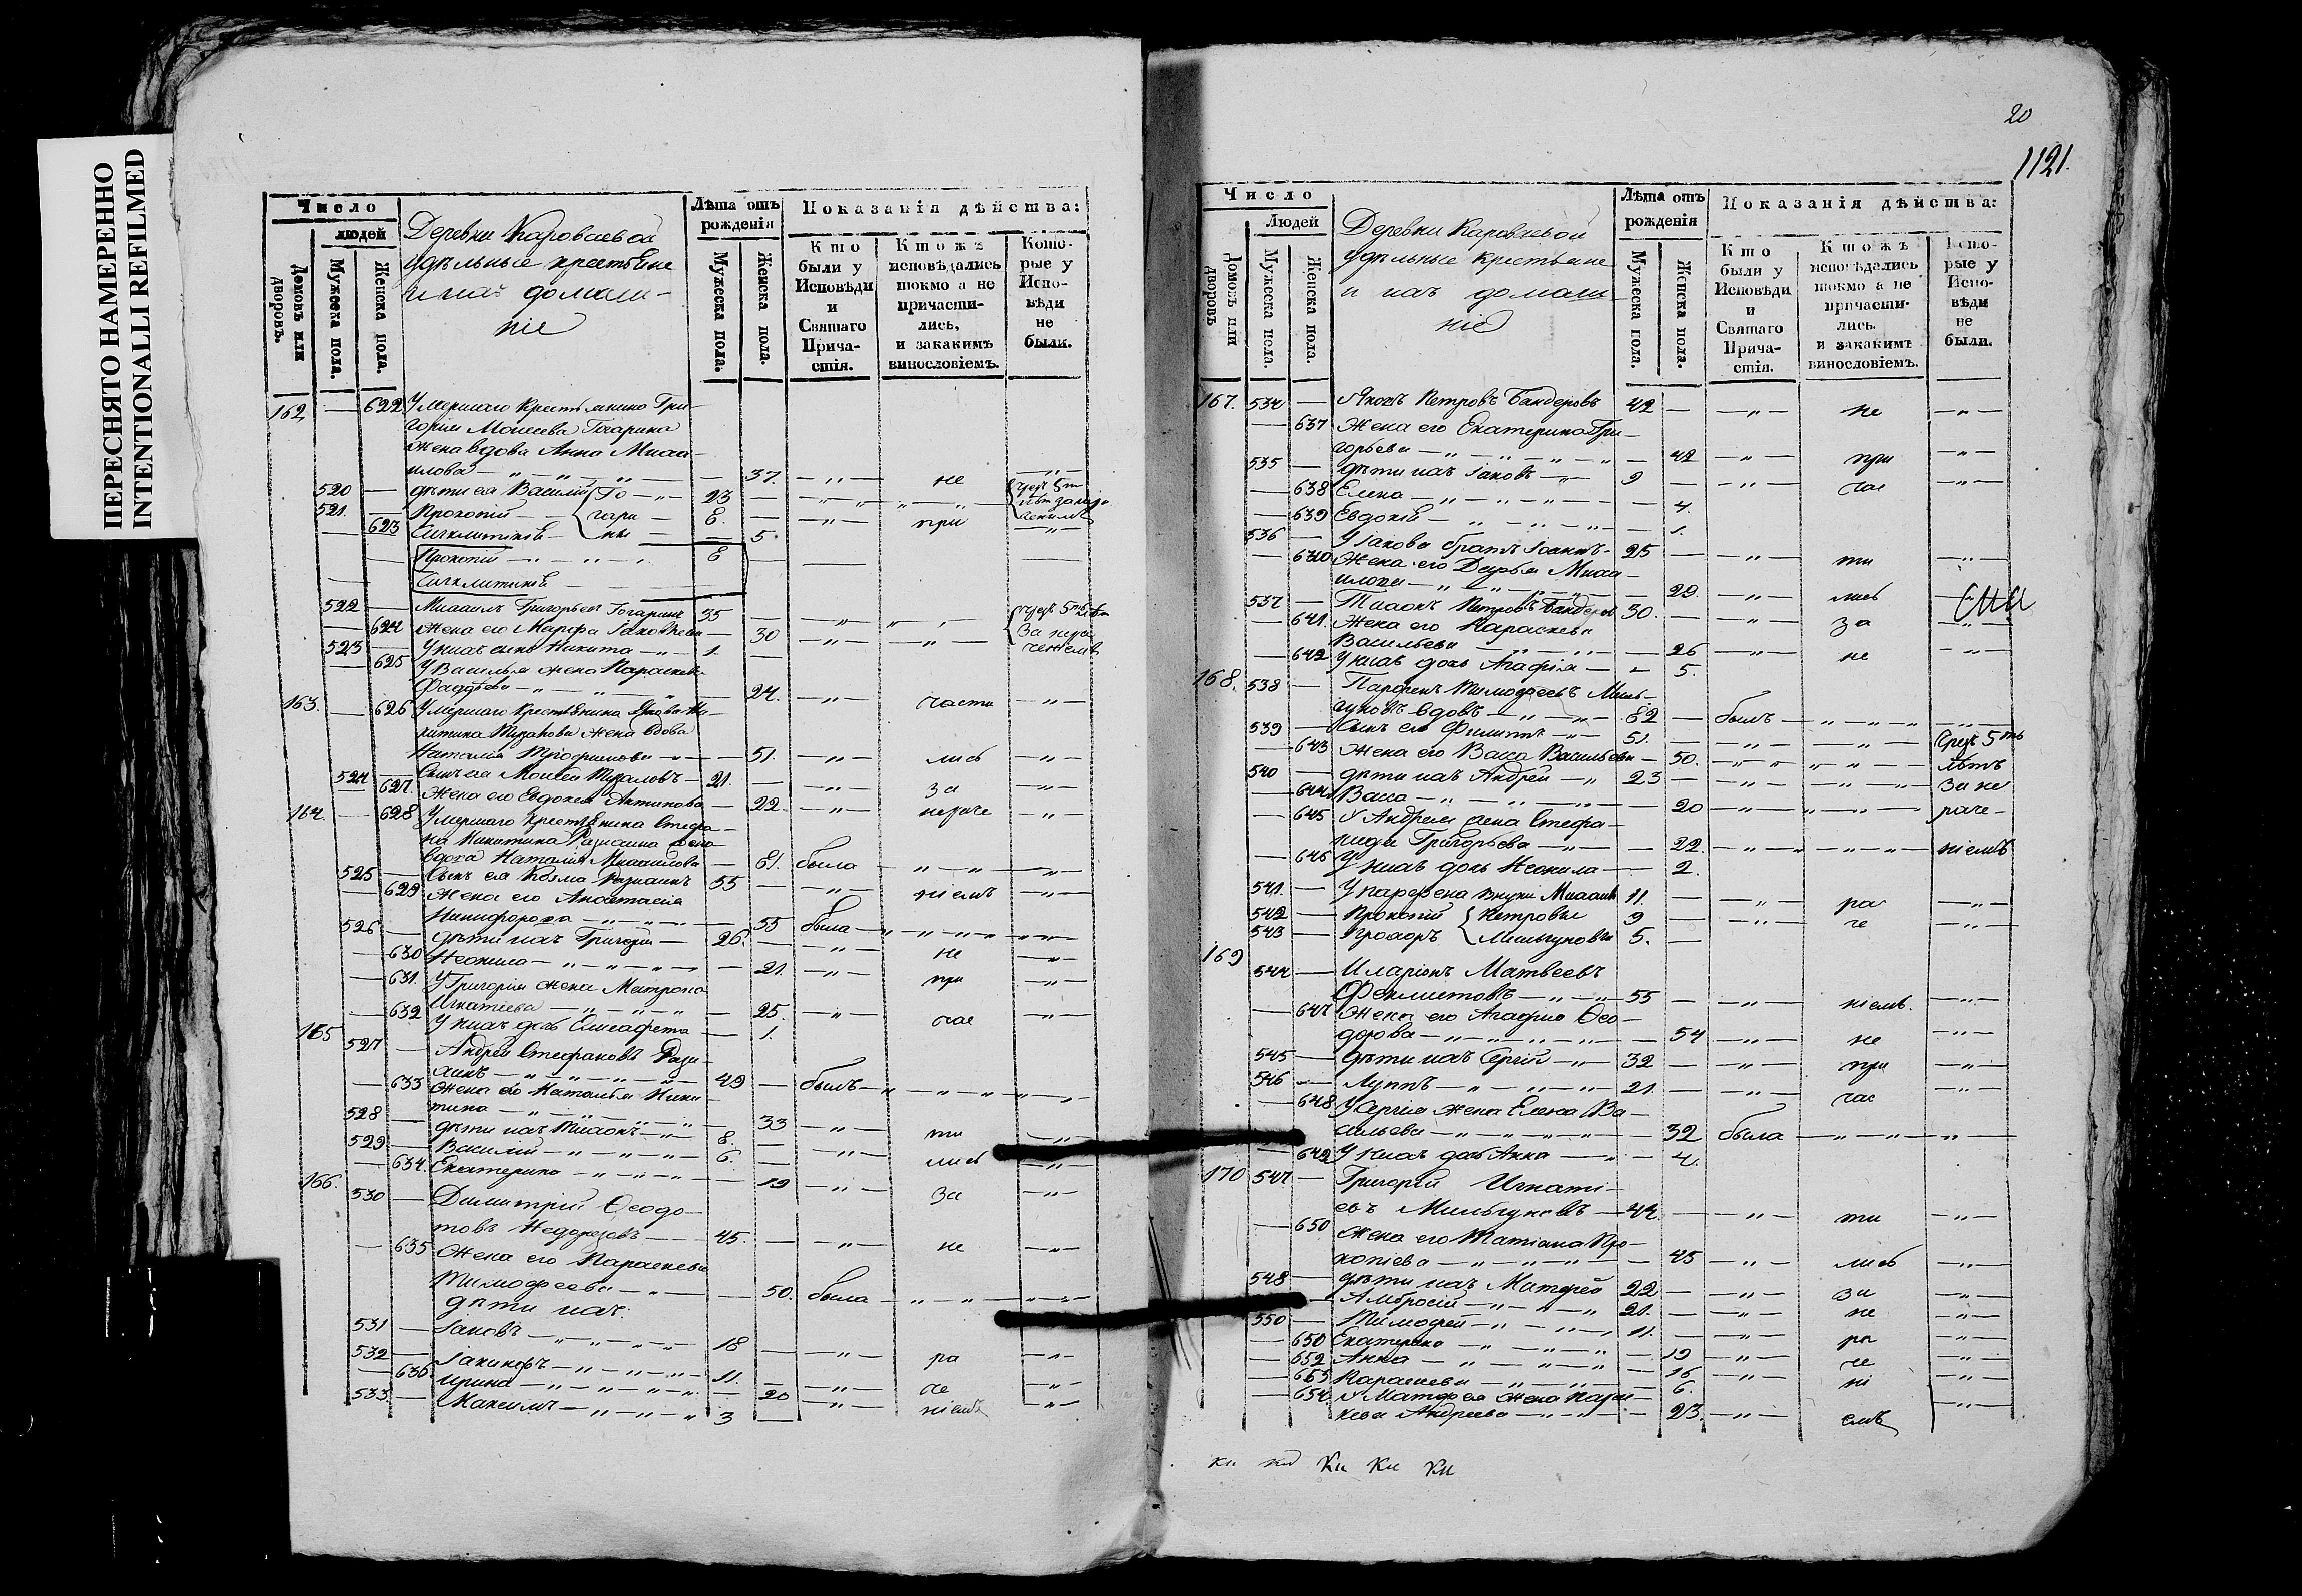 ПЕРЕСНЯТО НАМЕРЕННО
INTENTIONALLI REFILMED
Число
людей
Домовъ или дворовъ.
Мужеска пола.
Женска пола.
Деревни Короваевой
удѣльные крестьяне
и ихъ домаш-
ніе
Лѣта отъ рожденія
Мужеска пола.
Женска пола.
Показанія дѣйства:
Кто были у Исповѣди и Святаго Прича-стія.
Ктожъ исповѣдались токмо а не причасти-лись, и закакимъ винословіемъ.
Кото-рые у Испо-вѣди не были.
162 — 622 Умершаго крестьянина Гри-
горія Моисеева Гагарина
жена вдова Анна Михаи-
лова — 37. — не
520 — дѣти ея Василій 23
521. — Прокопій — 8. — при
— 623 Синклитикія — 5.
Прокопій — 8
Синклитикія
522 — Михаилъ Григорьевъ Гагаринъ 35
— 624 Жена его Марфа Іаковлева — 30
523 — У нихъ сынъ Никита — 1.
— 625 У Василья жена Параскева
Фаддѣева — 24. — части
163. — 626 Умершаго крестьянина
жена вдова
Наталія Трофимова — 51. — лись
524 — Сынъ ея Моисей — 21.
— 627. Жена его Евдокія Антипова — 22 — за
164. — 628 Умершаго крестьянина Стефа-
на Никитина жена
вдова Наталія Михаилова — 81. была
525 — Сынъ ея Козма 55
— 629 Жена его Анастасія — ніемъ
Никифорова — 55 была
526 — дѣти ихъ Григорій — 26.
— 630 Неонила — 21. — не
— 631. У Григорія жена Матрона — при
Игнатіева — 25.
— 632 У нихъ дочь Елисафета — 1. — час
165 527 — Андрей Стефановъ
— 49 — былъ
— 633 Жена его Наталья Ники-
тина — 33
528 — дѣти ихъ Тихонъ — 8. — ти
529 — Василій — 6. — лись
— 634. Екатерина — 19 — за
166. 530 — Димитрій Ѳеодо-
товъ — 45. — не
— 635 Жена его Параскева
Тимофеева — 50. была
дѣти ихъ:
531 — Іаковъ — 18 — ра
532 — Іакинфъ — 11. — че
— 636 Ирина — 20 — ніемъ
533 — Максимъ — 3
20
1121.
Число
Людей
Домовъ или дворовъ
Мужеска пола.
Женска пола.
Деревни Короваевой
удѣльные крестьяне
и ихъ домаш-
ніе
Лѣта отъ рожденія
Мужеска пола.
Женска пола.
Показанія дѣйства:
Кто были у Исповѣди и Святаго Прича-стія.
Ктожъ исповѣдались токмо а не причасти-лись. и закакимъ винословіемъ.
Кото-рые у Испо-вѣди не были.
167. 534 — Яковъ Петровъ Бандеровъ 42 — не
— 637 Жена его Екатерина Гри-
горьева — 42 — при
535 — дѣти ихъ Іаковъ — 9 — час
— 638 Елена — 4.
— 639 Евдокія — 1.
536 — У Іакова братъ Іоаннъ — 25 — ти
— 640 Жена его Дарья Михаи-
лова — 29. — лись
537 — Тихонъ Петровъ Бандеровъ 30. — за
— 641. Жена его Параскева
Васильева — 26 — не
— 642 У нихъ дочь Агафія — 5.
168. 538 — Парфенъ Тимофеевъ Миль-
гуновъ вдовъ — 82 — былъ
539 — Сынъ его Филиппъ — 51.
— 643 Жена его Васса Васильева — 50.
540 — дѣти ихъ Андрей — 23
— 644 Васса — 20
— 645 У Андрея жена Стефа-
нида Григорьева — 22.
— 646 У нихъ дочь Неонила — 2.
541. — У Парфена внуки Михаилъ 11. — ра
542 — Прокопій Петровы 9 — че
543 — Прохоръ Мильгуновы 5.
169 544 — Иларіонъ Матвеевъ
Феклистовъ — 55 — ніемъ.
— 647 Жена его Агафія Ѳео-
дорова — 54 — не
545 — дѣти ихъ Сергій — 32 — при
546 — Луппъ — 21. — час
— 648 У Сергія жена Елена Ва-
сильева — 32 была
— 649 У нихъ дочь Анна — 4.
170 547 — Григорій Игнати-
евъ Мильгуновъ — 44. — ти
— 650 Жена его Татіана Про-
копіева — 45 — лись
548 — дѣти ихъ Матфей 22 — за
Амвросій — 21. — не
550 — Тимофей — 11. — ра
— 650 Екатерина — 19 — че
— 652 Анна — 16 — ні
— 653 Параскева — 6.
— 654. У Матфея жена Парас-
кева Андреева — 23. — емъ